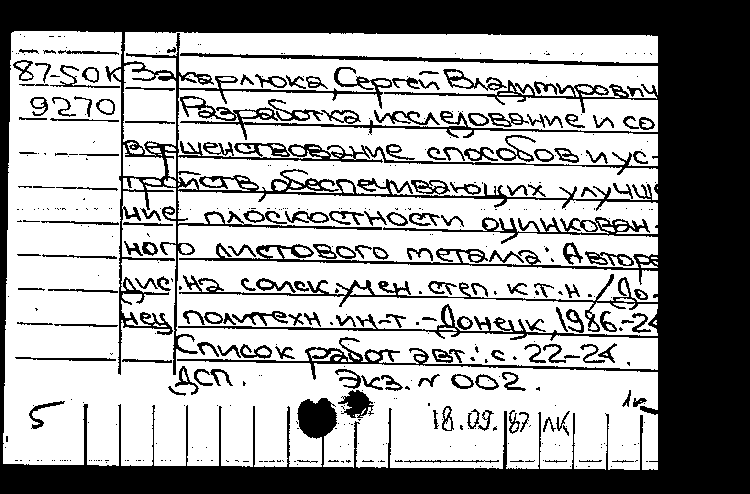 87-50К Закарлюка, Сергей Владимирович
9270 Разработка, исследование и со
вершенствование способов и ус-
тройств, обеспечивающих улучше
ние плоскостности оцинкован-
ного листового металла: Авторе
дис. на соиск. учен. степ. к.т.н. / До-
нец политехн. ин-т. -Донецк, 1986.-24
Список работ авт.: с. 22-24.
ДСП. Экз. N 002.
1к
5 18.09.87 ЛК